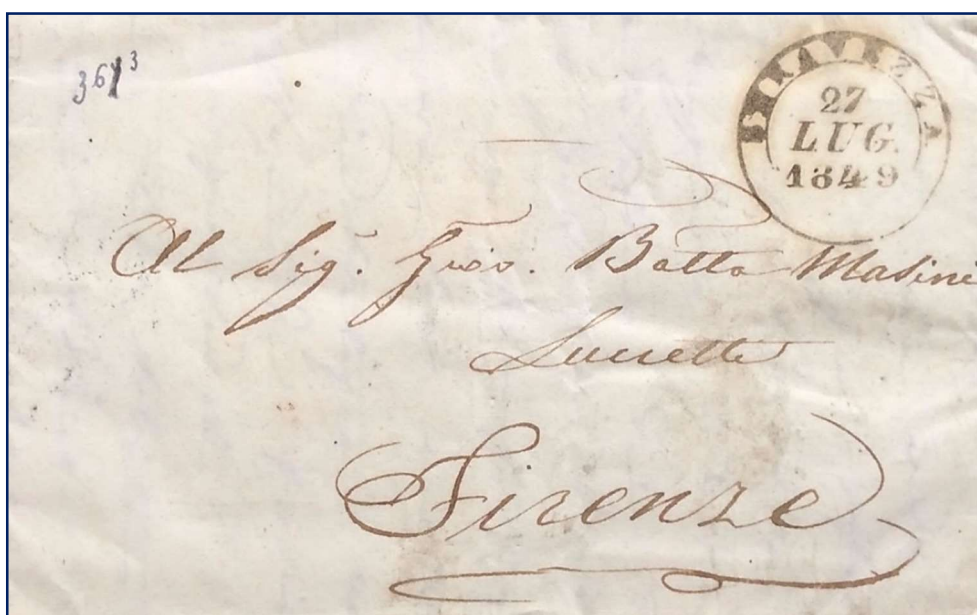 3613
27
LUG.
1849
Al Sig. Giov. Batta Masini
Firenze